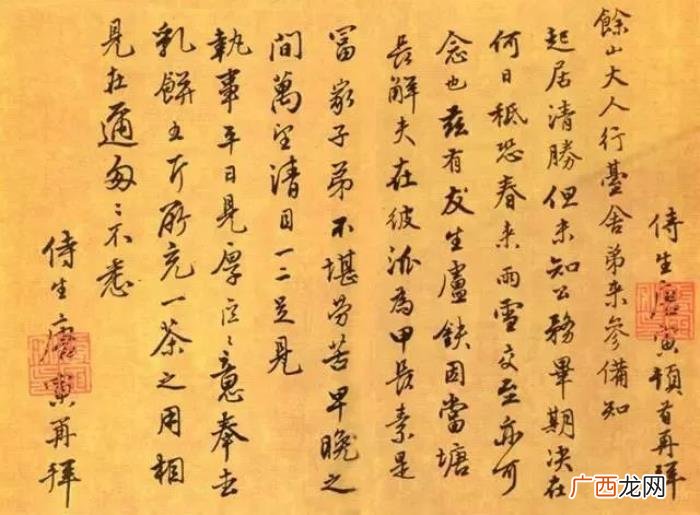 侍生唐寅頓首再拜
餘山大人行臺舍弟来參備知
起居清勝但未知公務畢期决在
何日秪恐春来雨雪交至亦可
念也茲有友生盧鈇因當塘
長解夫在彼派為甲長素是
冨家子弟不堪劳苦早晚之
間萬望清目一二足見
執事平日見厚区〻意奉去
乳餅五斤所充一茶之用相
見在邇匆〻不悉
侍生唐寅再拜
广西龙网